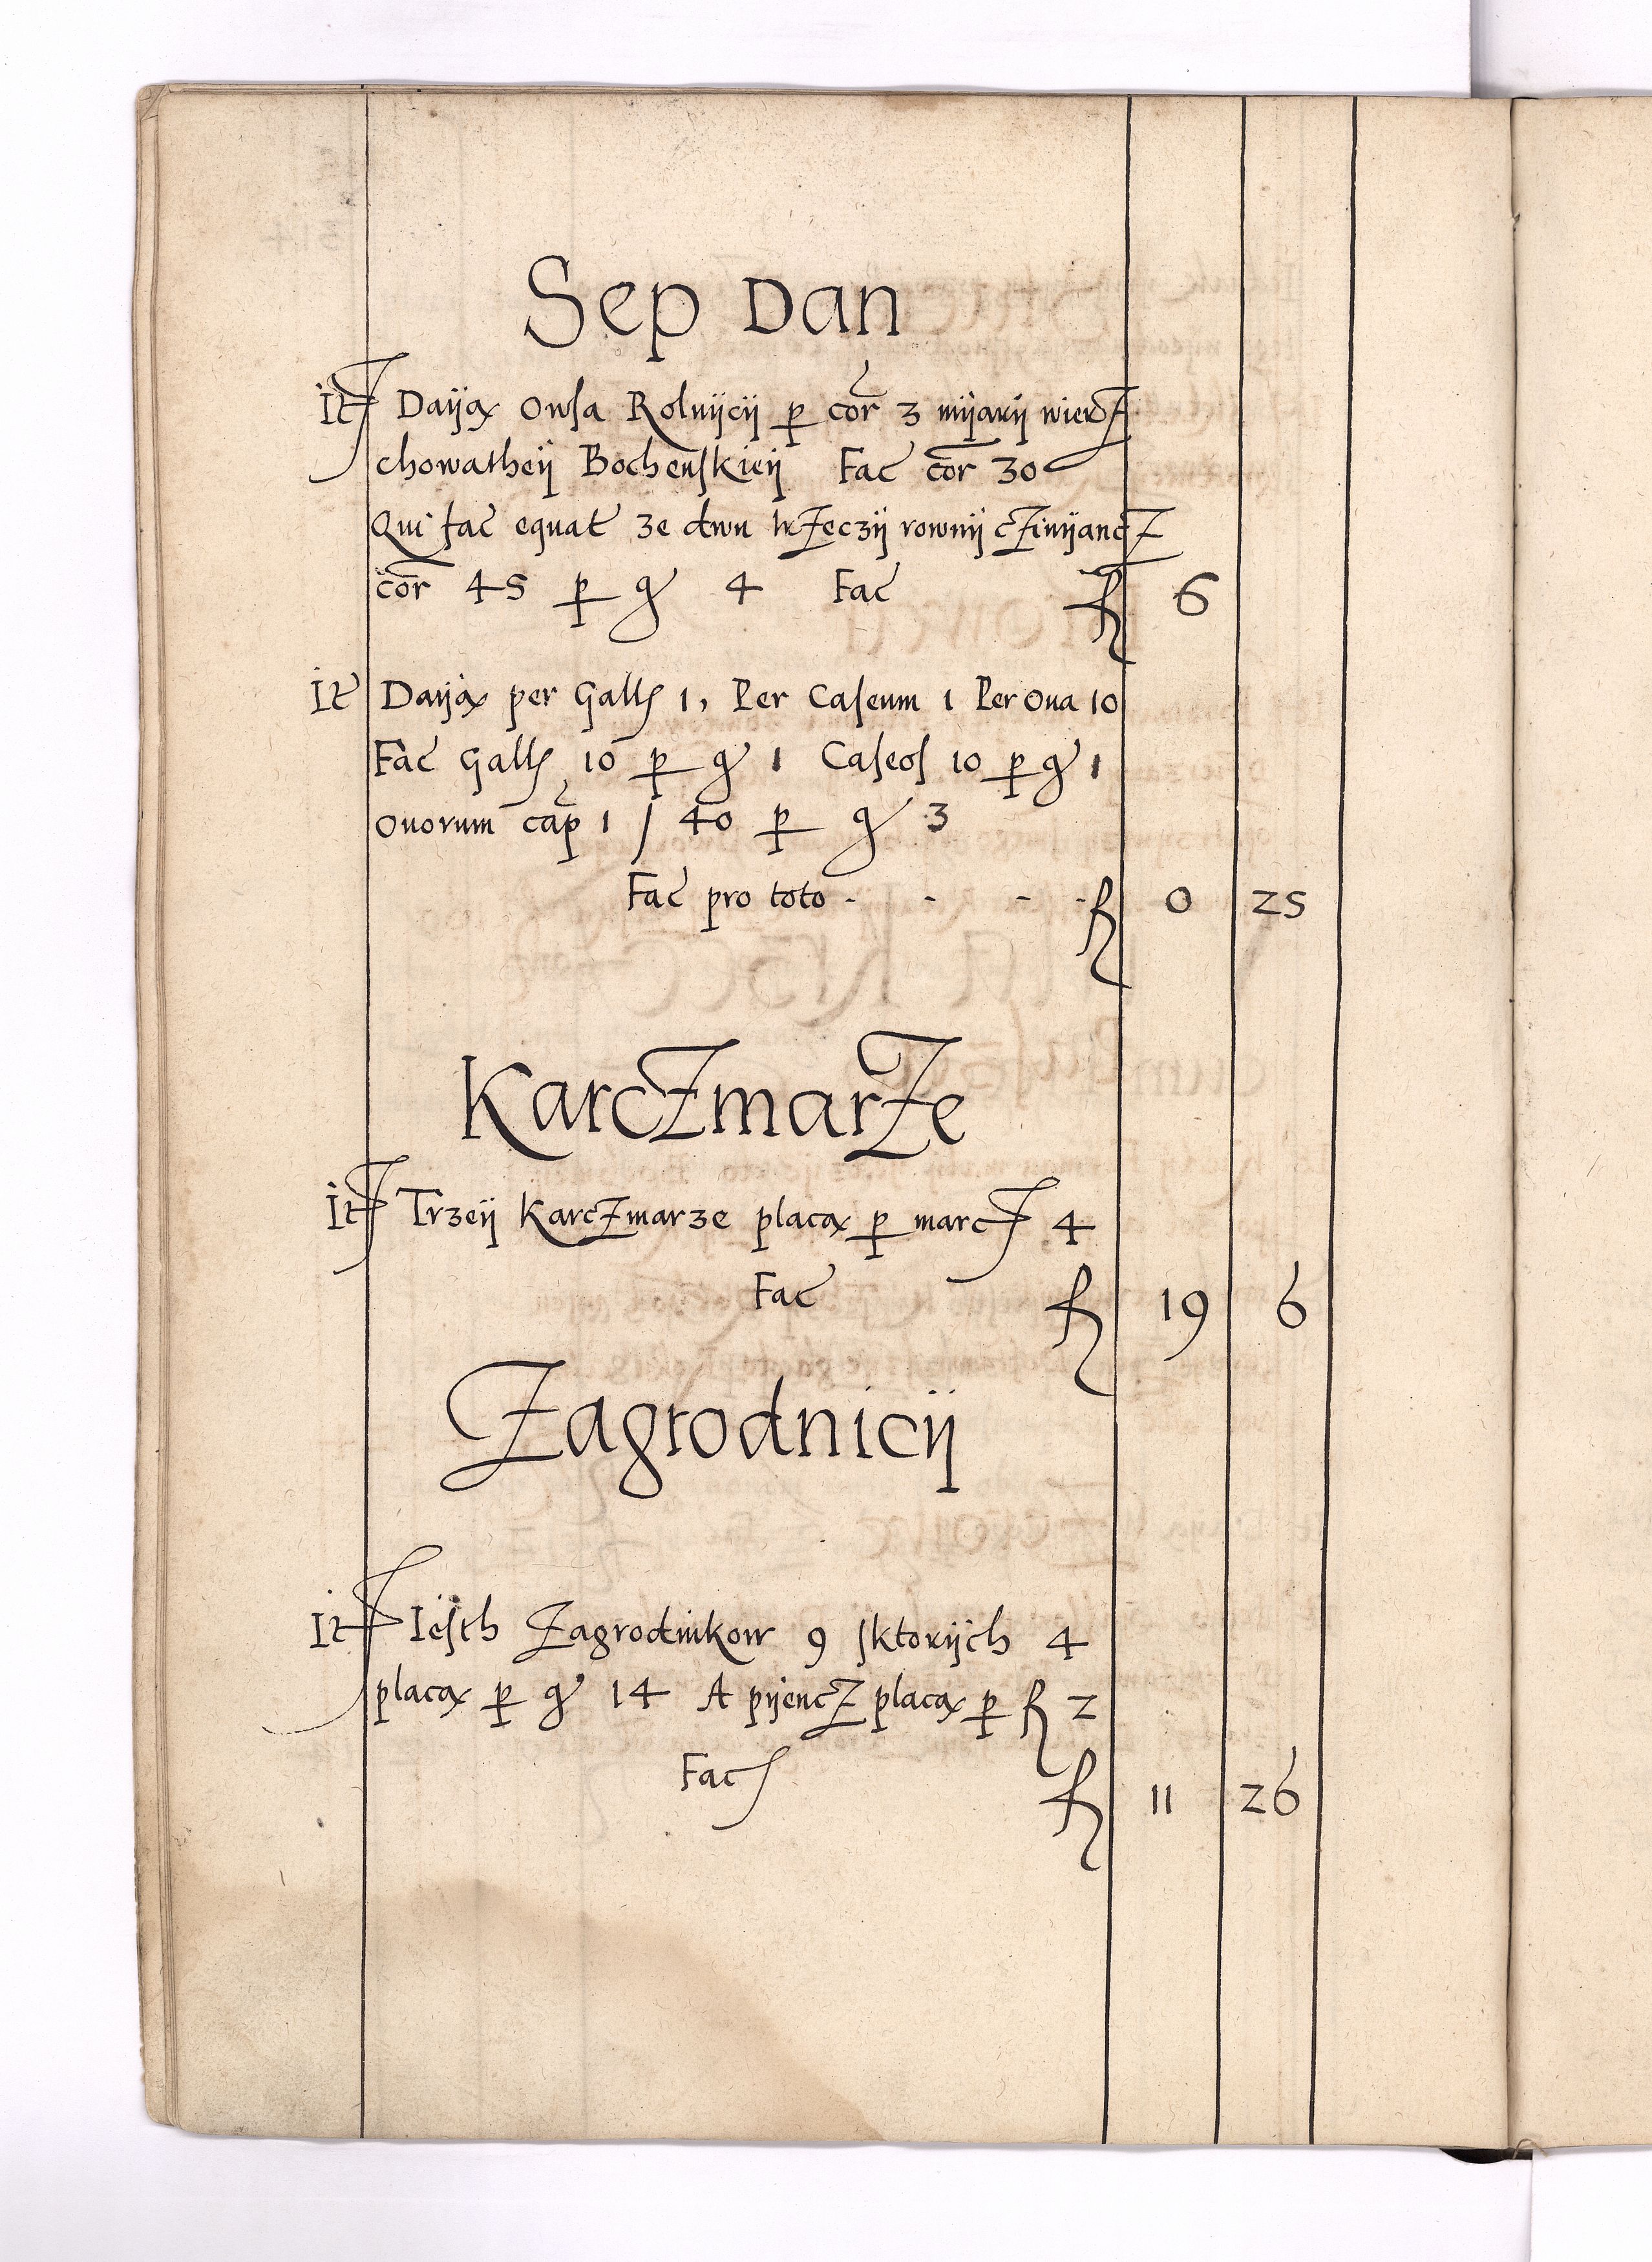 Sep Dan
It Daiją Owsa Rolnijcij p cor 3 mijarij wierz
chowatheij Bochenskieij Fac cor 30
Qui fac equat 3e dwu trzeczij rownij czinijancz
cor 45 p g 4 Fac fl 6
It Daiją per Galls 1, Per Caseum 1 Per Oua 10
Fac Galls 10 p g 1 Caseos 10 p g 1
ouorum cap 1 / 40 p g 3
Fac pro toto - - - - fl 0 25
Karczmarze
It Trzeij Karczmarze placą p marcz 4
Fac fl 19 6
Zagrodnicij
It Iesth Zagrodnikow 9 sktorijch 4
placą p g 14 A pijencz placą p fl 2
Fac fl 11 26